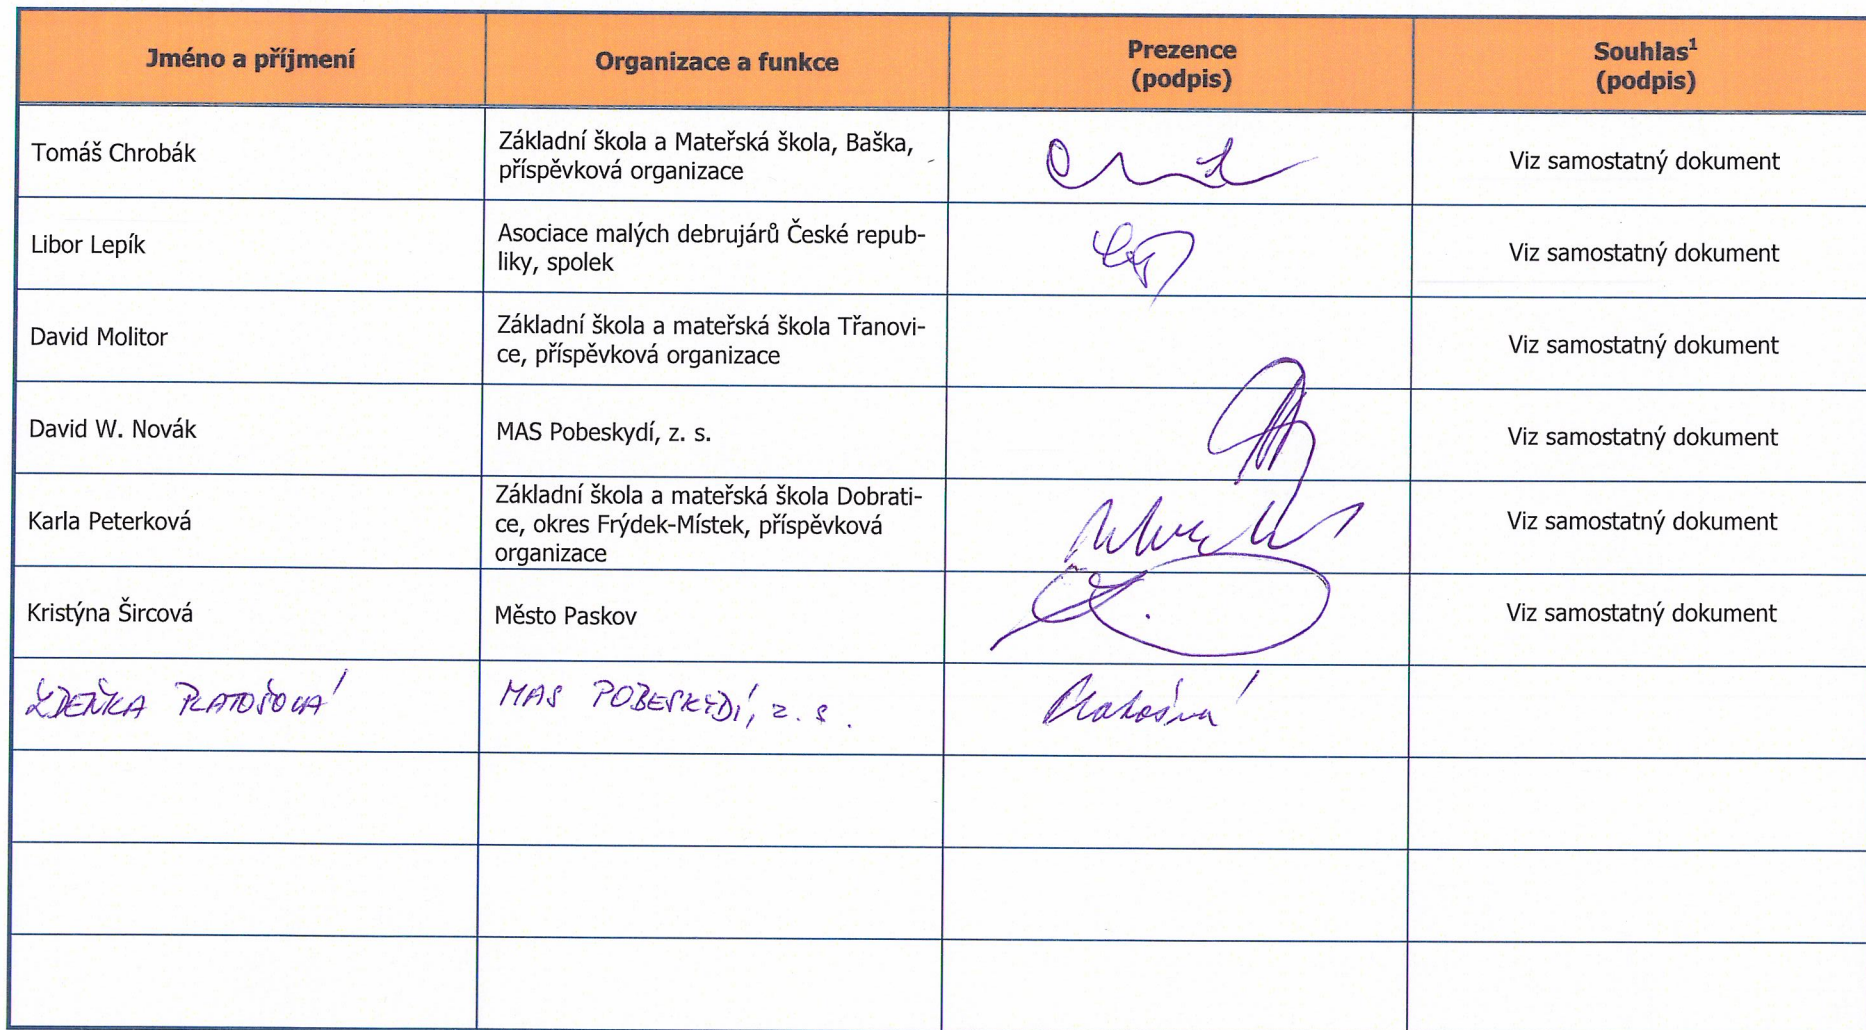 Jméno a příjmení
Organizace a funkce
Prezence
(podpis)
Souhlas¹
(podpis)
Tomáš Chrobák
Základní škola a Mateřská škola, Baška,
příspěvková organizace
Viz samostatný dokument
Libor Lepík
Asociace malých debrujárů České repub-
liky, spolek
Viz samostatný dokument
David Molitor
Základní škola a mateřská škola Třanovi-
ce, příspěvková organizace
Viz samostatný dokument
David W. Novák
MAS Pobeskydí, z. s.
Viz samostatný dokument
Karla Peterková
Základní škola a mateřská škola Dobrati-
ce, okres Frýdek-Místek, příspěvková
organizace
Viz samostatný dokument
Kristýna Šircová
Město Paskov
Viz samostatný dokument
ZDEŇKA PLATOŠOVÁ
MAS POBESKYDÍ, z. s.